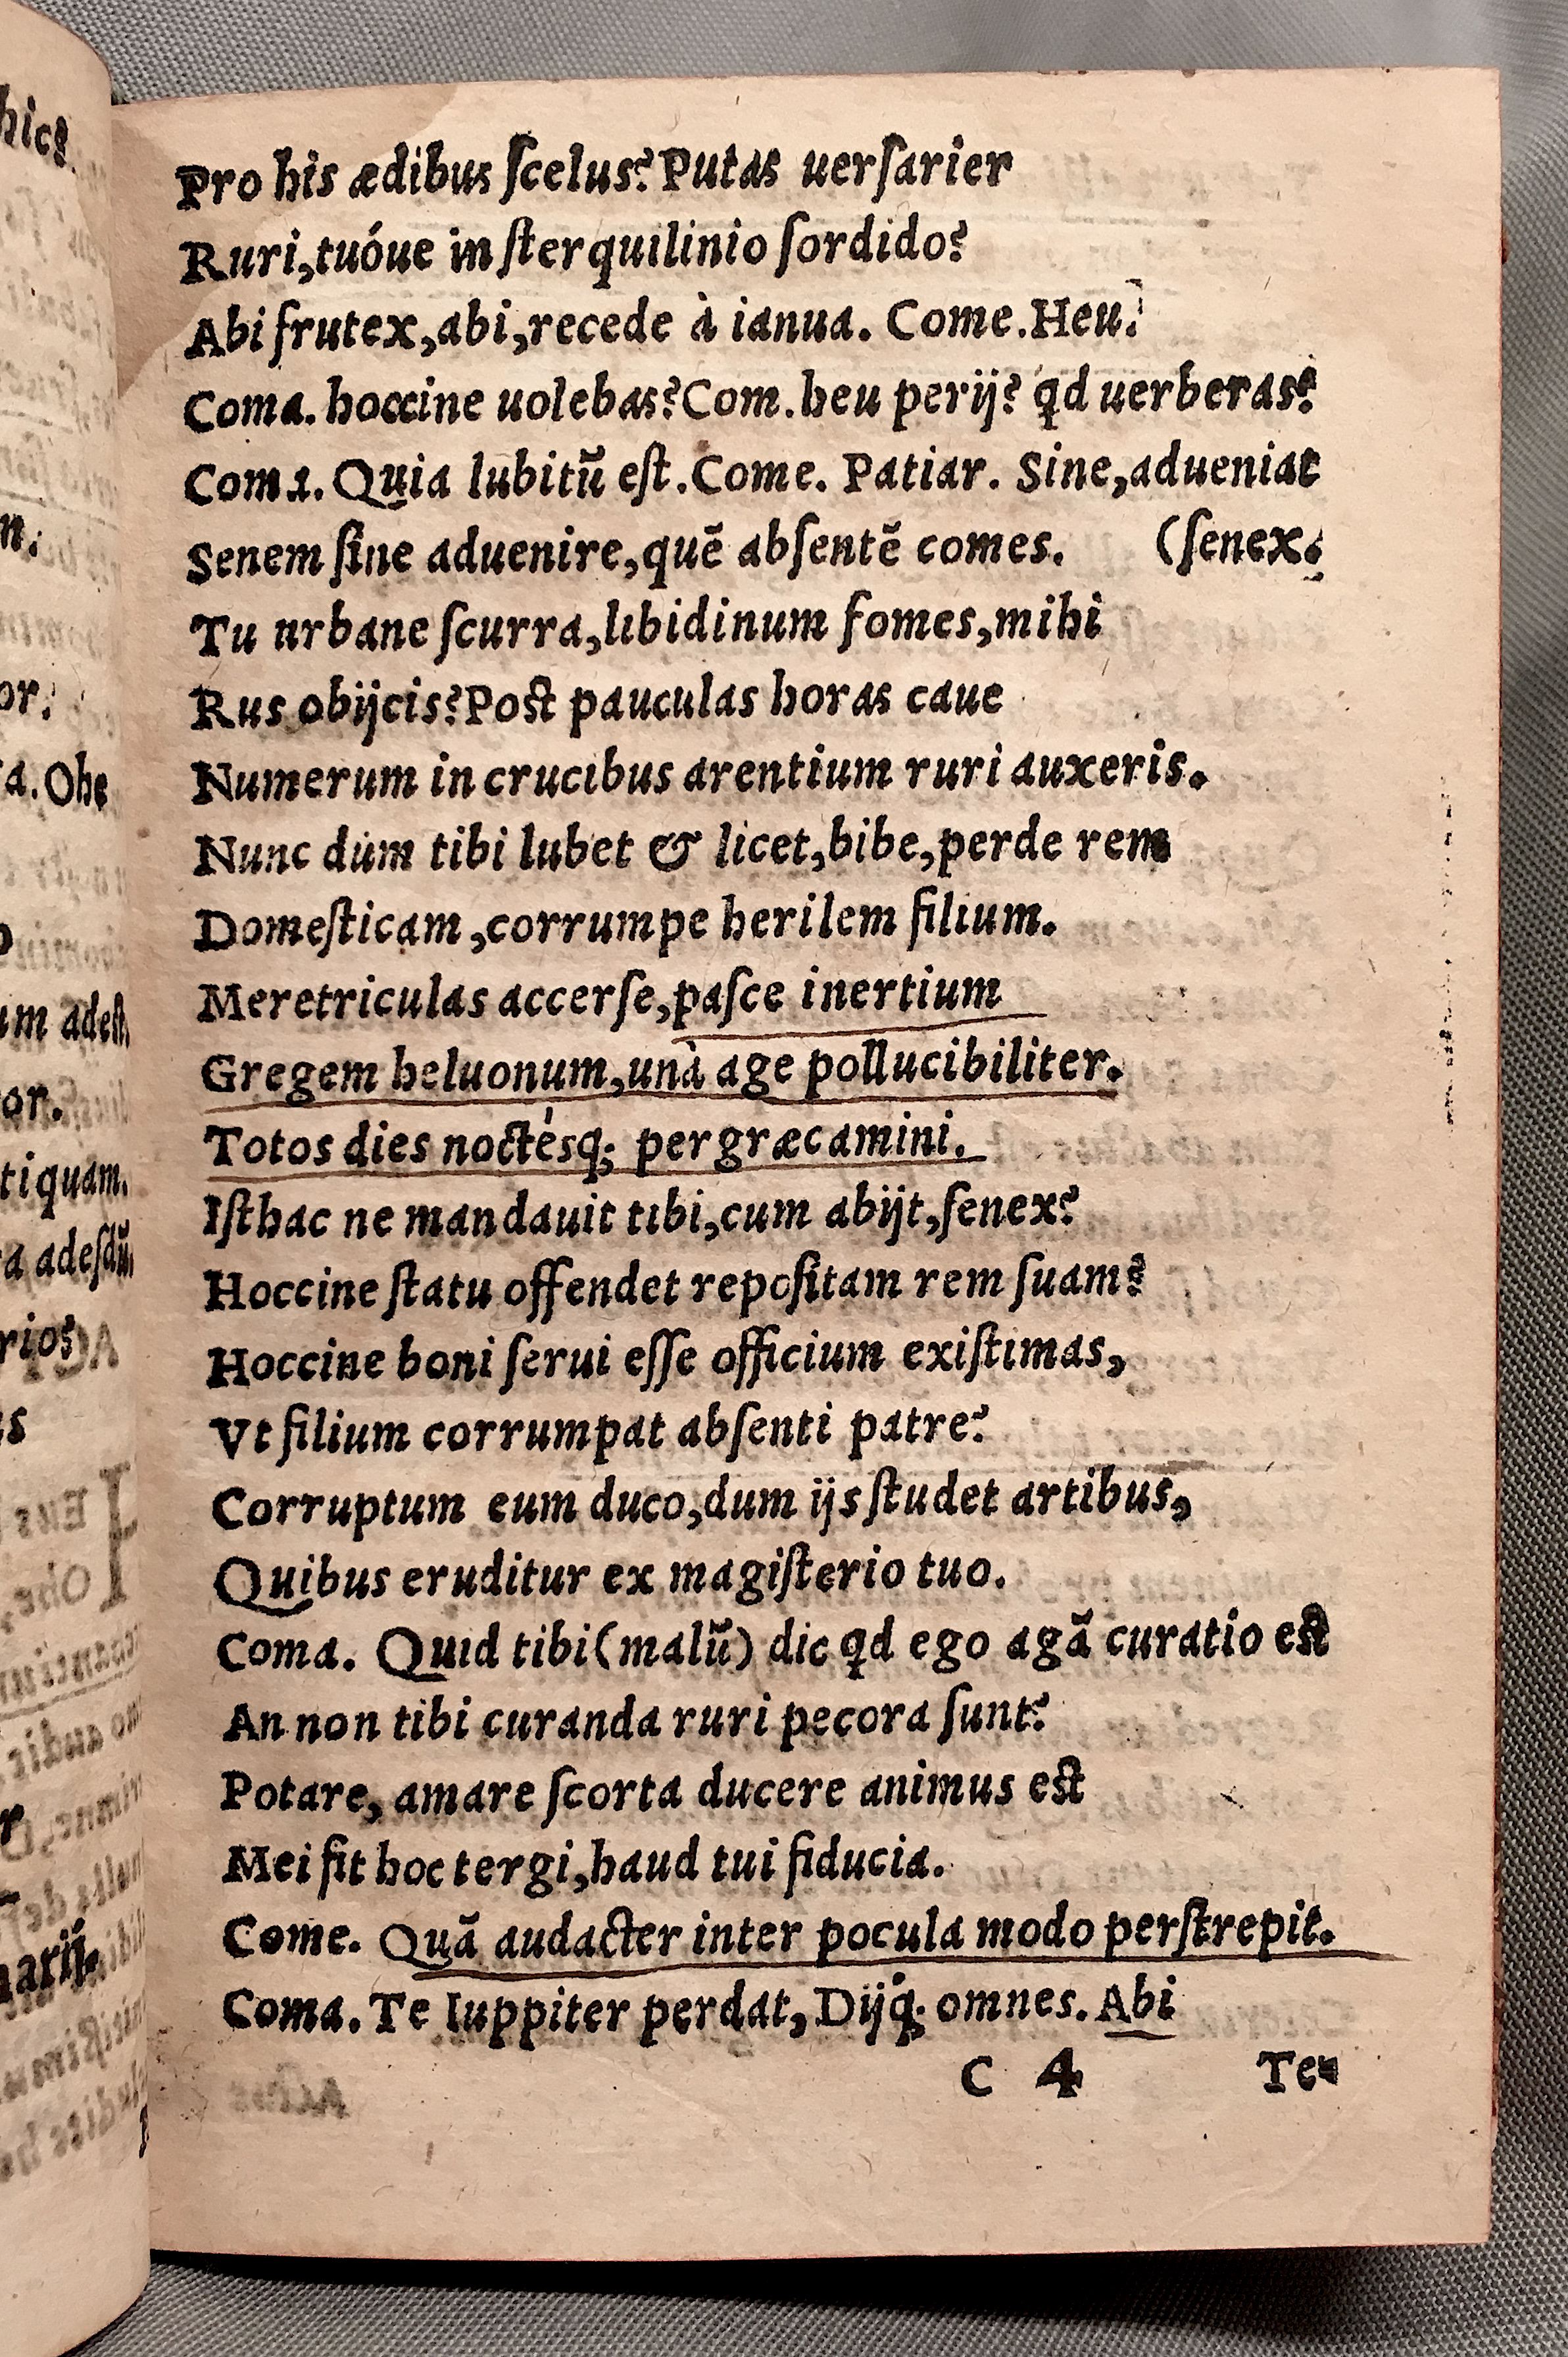 Pro his ædibus ſcelus? Putas uerſarier
Ruri, tuóue in ſterquilinio ſordido?
Abi frutex, abi, recede à ianua. Come. Heu?
Coma. hoccine uolebas? Com. heu perij? qd uerberas?
Coma. Quia lubitũ eſt. Come. Patiar. Sine, adueniat
Senem ſine aduenire, quẽ abſentẽ comes. (ſenex.
Tu urbane ſcurra, libidinum fomes, mihi
Rus obijcis? Poſt pauculas horas caue
Numerum in crucibus arentium ruri auxeris.
Nunc dum tibi lubet & licet, bibe, perde rem
Domeſticam, corrumpe herilem filium.
Meretriculas accerſe, paſce inertium
Gregem heluonum, unà age pollucibiliter.
Totos dies noctésq; pergræcamini.
Iſthac ne mandauit tibi, cum abijt, ſenex?
Hoccine ſtatu offendet repoſitam rem ſuam?
Hoccine boni ſerui eſſe officium exiſtimas,
Vt filium corrumpat abſenti patre?
Corruptum eum duco, dum ijs ſtudet artibus,
Quibus eruditur ex magiſterio tuo.
Coma. Quid tibi (malũ) dic qd ego agã curatio eſt
An non tibi curanda ruri pecora ſunt?
Potare, amare ſcorta ducere animus eſt
Mei fit hoc tergi, haud tui fiducia.
Come. Quã audacter inter pocula modo perſtrepit.
Coma. Te Iuppiter perdat, Dijq; omnes. Abi
C 4 Te-
hic?
n.
or.
a. Ohe
um adeſt
or.
tiquam.
a adeſdũ
rios
us
r
narij.